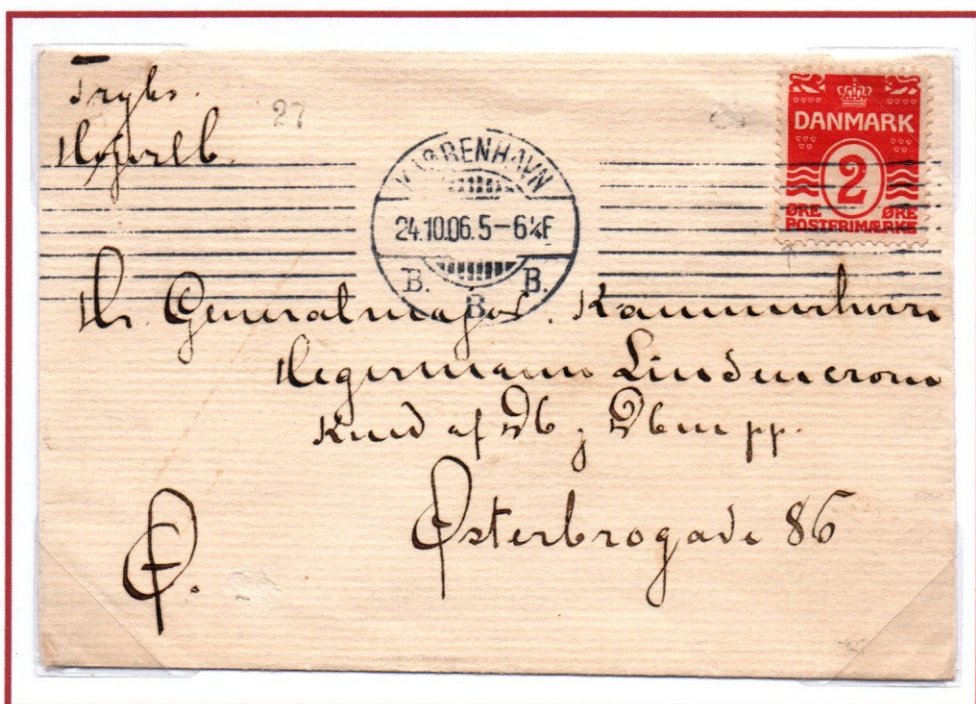 Tryks.
27
KJØBENHAVN
24.10.06. 5-6¼F
B. B. B.
DANMARK
2
ØRE ØRE
POSTFRIMÆRKE
Hr. Generalmajor. Kammerherre
Hegermann Lindencrone
af Db
Østerbrogade 86
Ø.